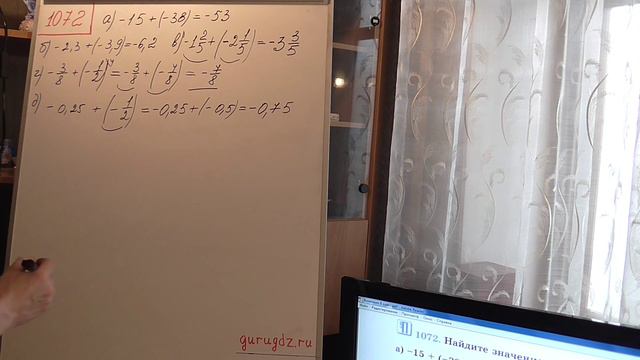 1072 а) -15 + (-38) = -53
б) -2,3 + (-3,9) = -6,2 в) -1 2/5 + (-2 1/5) = -3 3/5
г) -3/8 + (-1/2) = -3/8 + (-4/8) = -7/8
д) -0,25 + (-1/2) = -0,25 + (-0,5) = -0,75
gurugdz.ru
1072. Найдите значени
а) -15 + (-3